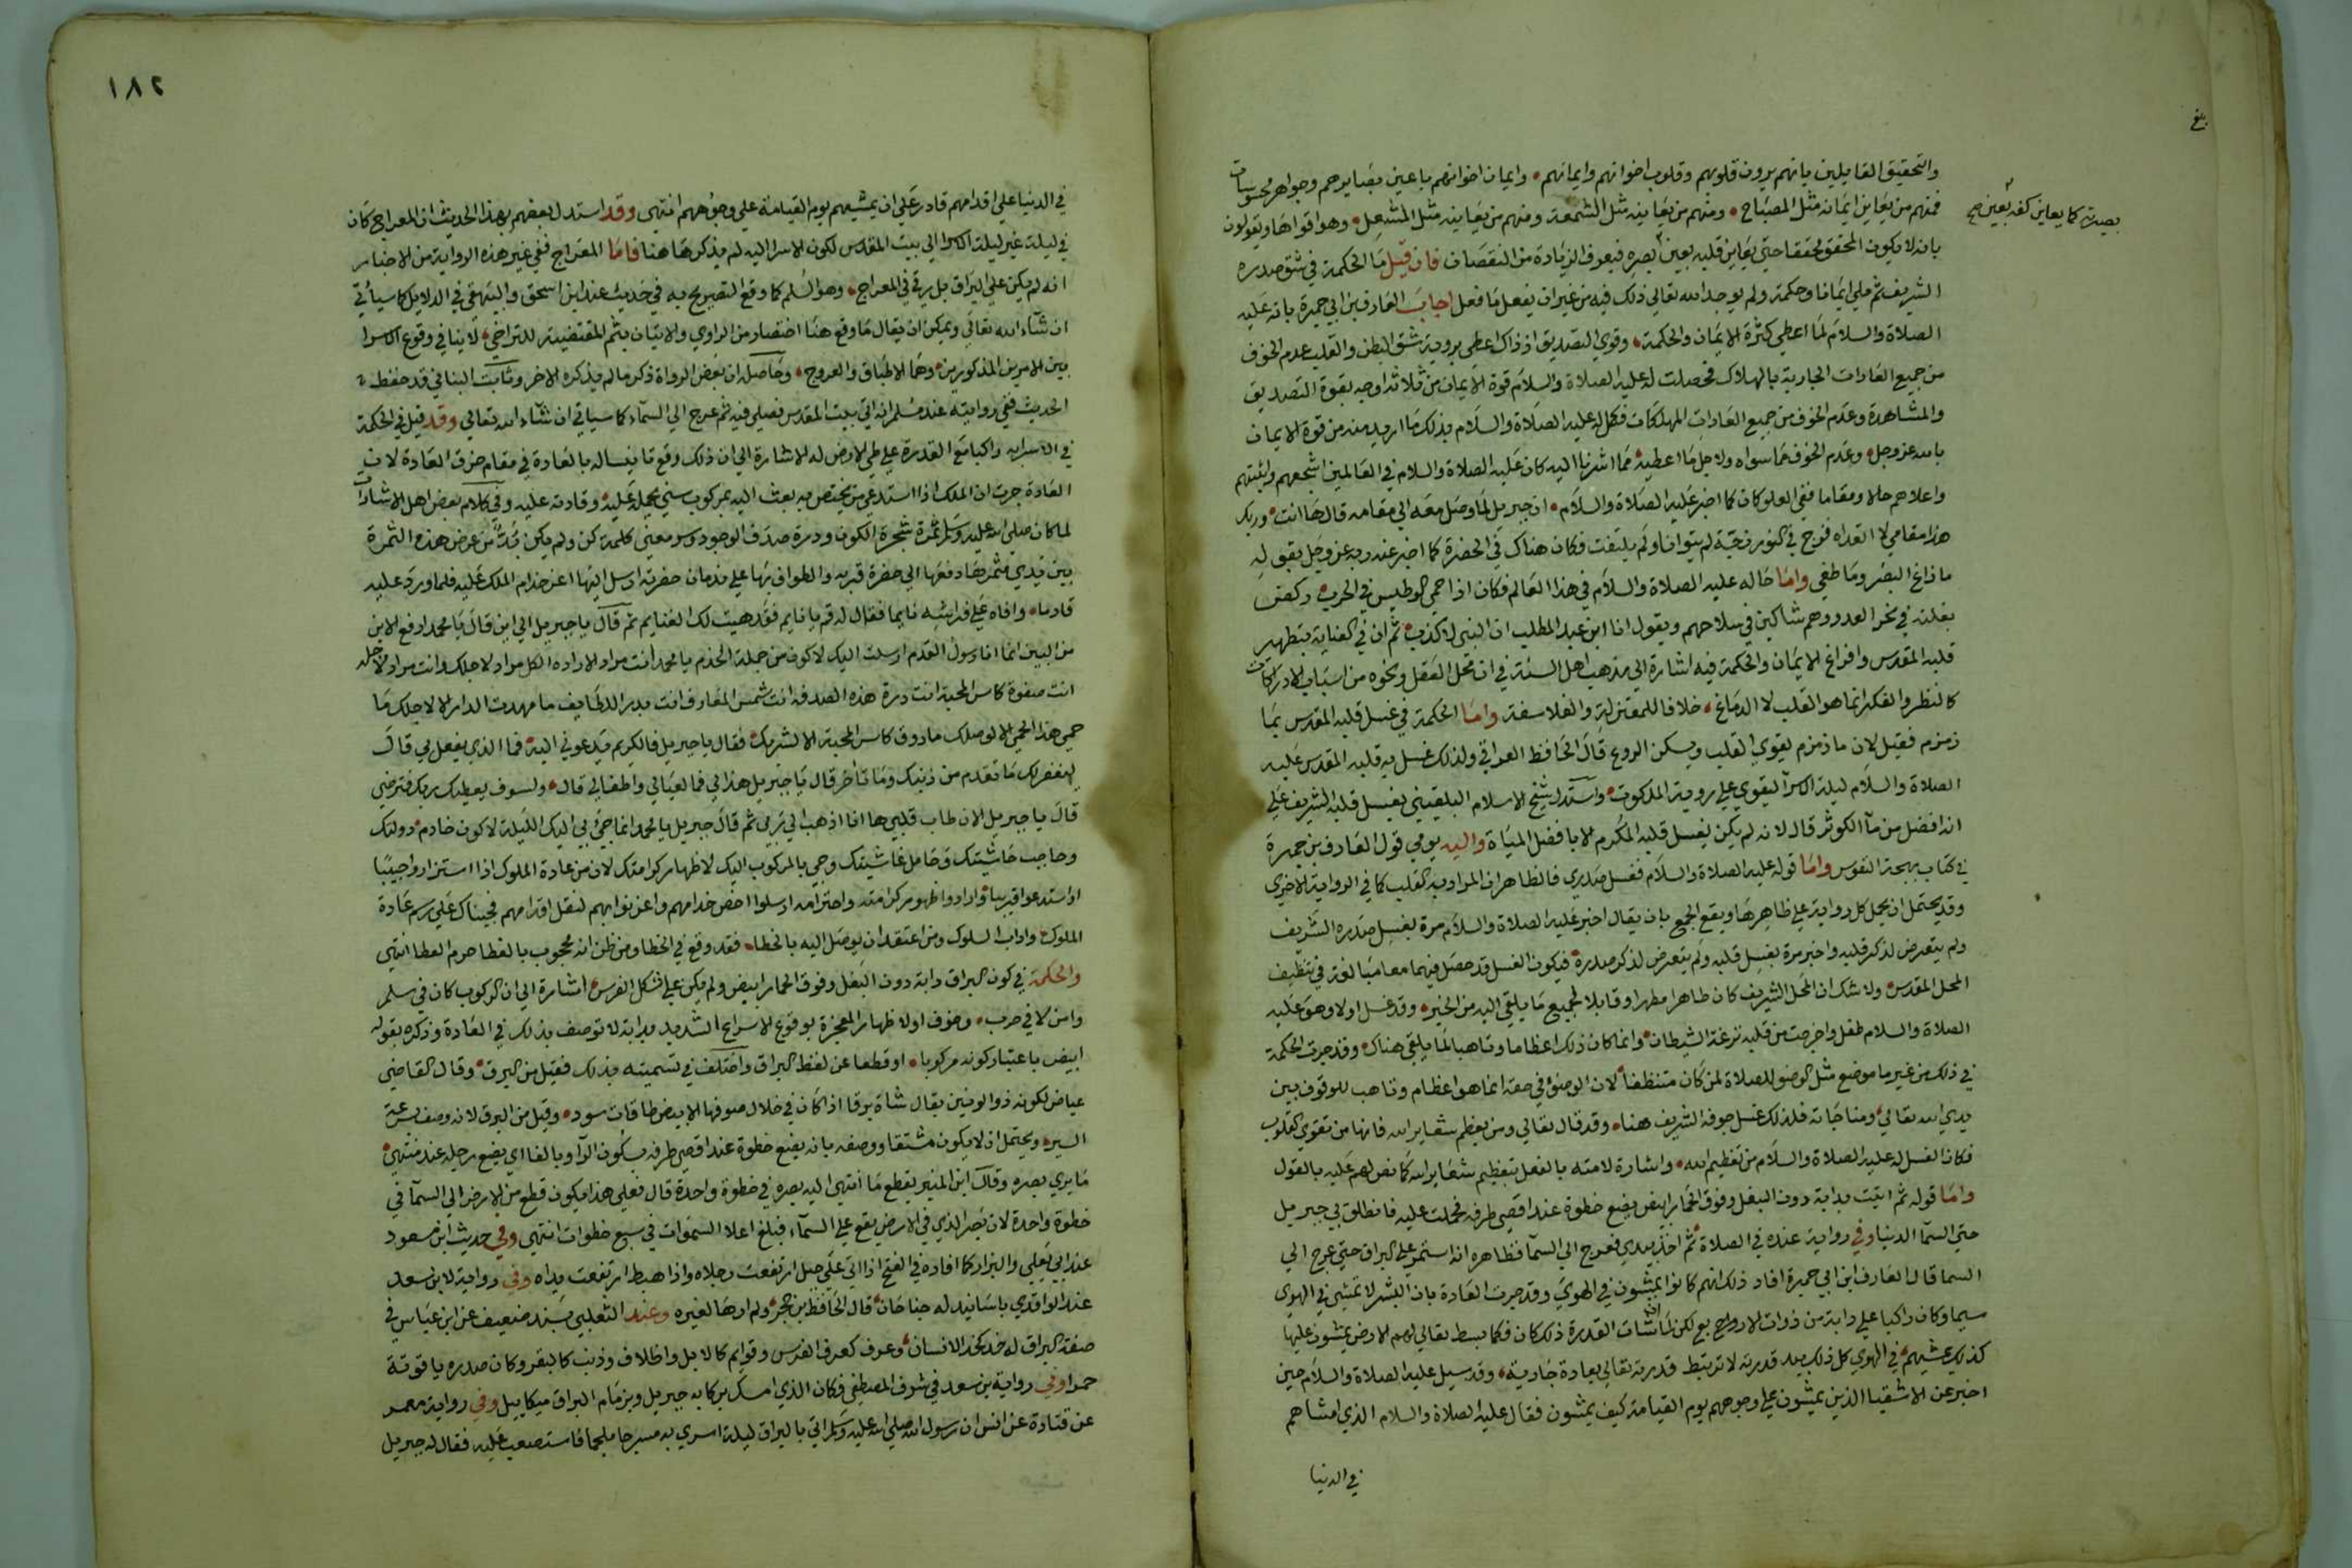 بلغ
والتحقيق القايلين بانهم يرون قلوبهم وقلوب اخوانهم وايمانهم وايمان اخوانهم باعين بصايرهم وجواهر محسوسات
فمنهم من يعاين ايمانه مثل المصباح ومنهم من يعاينه مثل الشمعة ومنهم من يعاينه مثل المشعل وهو اقواها ويقولون
بانه لا يكون المحقق محققا حتي يعاين قلبه بعين بصره فيعرف الزيادة من النقصان فان قيل ما الحكمة في شق صدره
بصيرته كما يعاين كفه بعين صح
الشريف ثم ملي ايمانا وحكمة ولم يوجد الله تعالي ذلك فيه من غير ان يفعل ما فعل اجاب العارف بن ابي جمرة بانه عليه
الصلاة والسلام لما اعطي كثرة الايمان والحكمة وقوي التصديق اذ ذاك اعطي بروية شق البطن والقلب عدم الخوف
من جميع العادات الجارية بالهلاك فحصلت له عليه الصلاة والسلام قوة الايمان من ثلاثة اوجه بقوة التصديق
والمشاهدة وعدم الخوف من جميع العادات المهلكات فكمل له عليه الصلاة والسلام بذلك ما اريد منه من قوة الايمان
بالله عز وجل وعدم الخوف مما سواه ولاجل ما اعطيه مما اشرنا اليه كان عليه الصلاة والسلام في العالمين اشجعهم واثبتهم
واعلاهم حالا ومقاما ففي العلو كان كما اخبر عليه الصلاة والسلام ان جبريل لما وصل معه الي مقامه قال ها انت وربك
هذا مقامي لا اتعداه فزج في النور زجة لم يتوان ولم يلتفت فكان هناك في الحضرة كما اخبر عنه ربه عز وجل بقوله
ما زاغ البصر وما طغي واما حاله عليه الصلاة والسلام في هذا العالم فكان اذا حمي الوطيس في الحرب ركض
بغلته في نحر العدو وهم شاكين في سلاحهم ويقول انا ابن عبد المطلب انا النبي لا كذب ثم ان في العناية بتطهير
قلبه المقدس وافراغ الايمان والحكمة فيه اشارة الي مذهب اهل السنة في ان محل العقل ونحوه من اسباب الادراكات
كالنظر والفكر انما هو القلب لا الدماغ خلافا للمعتزلة والفلاسفة واما الحكمة في غسل قلبه المقدس بما
زمزم فقيل لان ما زمزم يقوي القلب ويسكن الروع قال الحافظ العراقي ولذلك غسل به قلبه المقدس عليه
الصلاة والسلام ليلة الاسرآ ليقوي علي روية الملكوت واستدل شيخ الاسلام البلقيني بغسل قلبه الشريف علي
انه افضل من مآ الكوثر قال لانه لم يكن يغسل قلبه المكرم الا بافضل المياة واليه يومي قول العارف بن جمرة
في كتاب بهجة النفوس واما قوله عليه الصلاة والسلام فغسل صدري فالظاهر ان المراد به القلب كما في الرواية الاخري
وقد يحتمل ان يحمل كل رواية علي ظاهرها ويقع الجمع بان يقال اخبر عليه الصلاة والسلام مرة بغسل صدره الشريف
ولم يتعرض لذكر قلبه واخبر مرة بغسل قلبه ولم يتعرض لذكر صدره فيكون الغسل قد حصل فيهما معا مبالغة في تنظيف
المحل المقدس ولا شك ان المحل الشريف كان طاهرا مطهرا وقابلا لجميع ما يلقي اليه من الخير وقد غسل اولا وهو عليه
الصلاة والسلام طفل واخرجت من قلبه نزغة الشيطان وانما كان ذلك اعظاما وتاهبا لما يلقي هناك وقد جرت الحكمة
في ذلك من غير ما موضع مثل الوضو للصلاة لمن كان متنظفا لان الوضوء في حقه انما هو اعظام وتاهب للوقوف بين
يدي الله تعالي ومناجاته فلذلك غسل جوفه الشريف هنا وقد قال تعالي ومن يعظم شعاير الله فانها من تقوي القلوب
فكان الغسل له عليه الصلاة والسلام من تعظيم الله واشارة لامته بالفعل بتعظيم شعاير الله كما نص لهم عليه بالقول
واما قوله ثم اتيت بدابة دون البغل وفوق الحمار ابيض يضع خطوة عند اقصي طرفه فحملت عليه فانطلق بي جبريل
حتي السمآ الدنيا وفي رواية عنده في الصلاة ثم اخذ بيدي فعرج الي السمآ فظاهره انه استمر علي البراق حتي عرج الي
السما قال العارف ابن ابي جمرة افاد ذلك انهم كانوا يمشون في الهوي وقد جرت العادة بان البشر لا تمشي في الهوي
سيما وكان راكبا علي دابة من ذوات الارواح مع لكن لما شات القدرة ذلك كان فكما بسط تعالي لهم الارض يمشون عليها
كذلك يمشيهم في الهوي كل ذلك بيد قدرته لا ترتبط قدرته تعالي بعادة جارية وقد سيل عليه الصلاة والسلام حين
اخبر عن الاشقيا الذين يمشون علي وجوههم يوم القيامة كيف يمشون فقال عليه الصلاة والسلام الذي امشاهم
في الدنيا
١٨٢
في الدنيا علي اقدامهم قادر علي ان يمشيهم يوم القيامة علي وجوههم انتهي وقد استدل بعضهم بهذا الحديث ان المعراج كان
في ليلة غير ليلة الاسرا الي بيت المقدس لكون الاسرا اليه لم يذكرها هنا فاما المعراج ففي غير هذه الرواية من الاخبار
انه لم يكن علي البراق بل رقي في المعراج وهو السلم كما وقع التصريح به في حديث عند ابن اسحق والبيهقي في الدلايل كما سياتي
ان شآء الله تعالي ويمكن ان يقال ما وقع هنا اختصار من الراوي والاتيان بثم المقتضية للتراخي لا ينافي وقوع الاسرا
بين الامرين المذكورين وهما الاطباق والعروج وحاصله ان بعض الرواة ذكر ما لم يذكره الاخر وثابت البناني قد حفظ
الحديث ففي روايته عند مسلم انه اتي بيت المقدس فصلي فيه ثم عرج الي السمآء كما سياتي ان شآء الله تعالي وقد قيل في الحكمة
في الاسرا به راكبا مع القدرة علي طي الارض له الاشارة الي ان ذلك وقع تانيسا له بالعادة في مقام خرق العادة لان
العادة جرت ان الملك اذا استدعي من يختص به بعث اليه بمركوب سني يحمله عليه وقادته عليه وفي كلام بعض اهل الاشارات
لما كان صلي الله عليه وسلم ثمرة شجرة الكون ودرة صدف الوجود وسر معني كلمة كن ولم يكن بد من عرض هذه الثمرة
بين يدي مثمرها ورفعها الي حضرة قربه والطواف بها علي ندمان حضرته ارسل اليها اعز خدام الملك عليه فلما ورد عليه
قادما وافاه علي فراشه نايما فقال له قم يا نايم فقد هيت لك الغنايم ثم قال يا جبريل الي اين قال يا محمد ارفع الاين
من البين انما انا رسول القدم ارسلت اليك لاكون من جملة الخدم يا محمد انت مراد الارادة الكل مراد لاجلك وانت مراد لاجله
انت صفوة كاس المحبة انت درة هذه الصدفة انت شمس المعارف انت بدر اللطايف ما مهدت الدار الا لاجلك ما
حمي هذا الحمي الا لوصلك ما روق كاس المحبة الا لشربك فقال يا جبريل فالكريم يدعوني اليه فما الذي يفعل بي قال
ليغفر لك ما تقدم من ذنبك وما تاخر قال يا جبريل هذا لي فما لعيالي واطفالي قال ولسوف يعطيك ربك فترضي
قال يا جبريل الان طاب قلبي ها انا اذهب الي ربي ثم قال جبريل يا محمد انما جئ بي اليك الليلة لاكون خادم دولتك
وحاجب حاشيتك وحامل غاشيتك وجي بالمركوب اليك لاظهار كرامتك لان من عادة الملوك اذا استزاروا حبيبا
او استدعوا قريبا وارادوا ظهور كرامته واحترامه ارسلوا اخص خدامهم واعز نوابهم لنقل اقدامهم فجيناك علي رسم عادة
الملوك واداب السلوك ومن اعتقد ان يوصل اليه بالخطا فقد وقع في الخطا ومن ظن انه محجوب بالغطا حرم العطا انتهي
والحكمة في كون البراق دابة دون البغل وفوق الحمار ابيض ولم يكن علي شكل الفرس اشارة الي ان الركوب كان في سلم
وامن لا في حرب وخوف او لاظهار المعجزة بوقوع الاسراع الشديد بدابة لا توصف بذلك في العادة وذكره بقوله
ابيض باعتبار كونه مركوبا او قطعا عن لفظ البراق واختلف في تسميته بذلك فقيل من البرق وقال القاضي
عياض لكونه ذو لونين يقال شاة برقا اذا كان في خلال صوفها الابيض طاقات سود وقيل من البرق لانه وصف بسرعة
السير ويحتمل ان لا يكون مشتقا ووصفه بانه يضع خطوة عند اقصي طرفه بسكون الرآ وبالفا اي يضع رجله عند منتهي
ما يري بصره وقال ابن المنير يقطع ما انتهي اليه بصره في خطوة واحدة قال فعلي هذا يكون قطع من الارض الي السمآ في
خطوة واحدة لان بصر الذي في الارض يقع علي السمآء فبلغ اعلا السموات في سبع خطوات انتهي وفي حديث ابن مسعود
عند ابي يعلي والبزار كما افاده في الفتح اذا اتي علي جبل ارتفعت رجلاه واذا هبط ارتفعت يداه وفي رواية لابن سعد
عند الواقدي باسانيد له جناحان قال الحافظ بن حجر ولم ارها لغيره وعند الثعلبي بسند ضعيف عن ابن عباس في
صفة البراق له خد كخد الانسان وعرف كعرف الفرس وقوايم كالابل واظلاف وذنب كالبقر وكان صدره ياقوتة
حمرا وفي رواية بن سعد في شرف المصطفي فكان الذي امسك بركابه جبريل وبزمام البراق ميكاييل وفي رواية معمر
عن قتادة عن انس ان رسول الله صلي الله عليه وسلم اتي بالبراق ليلة اسري به مسرجا ملجما فاستصعب عليه فقال له جبريل